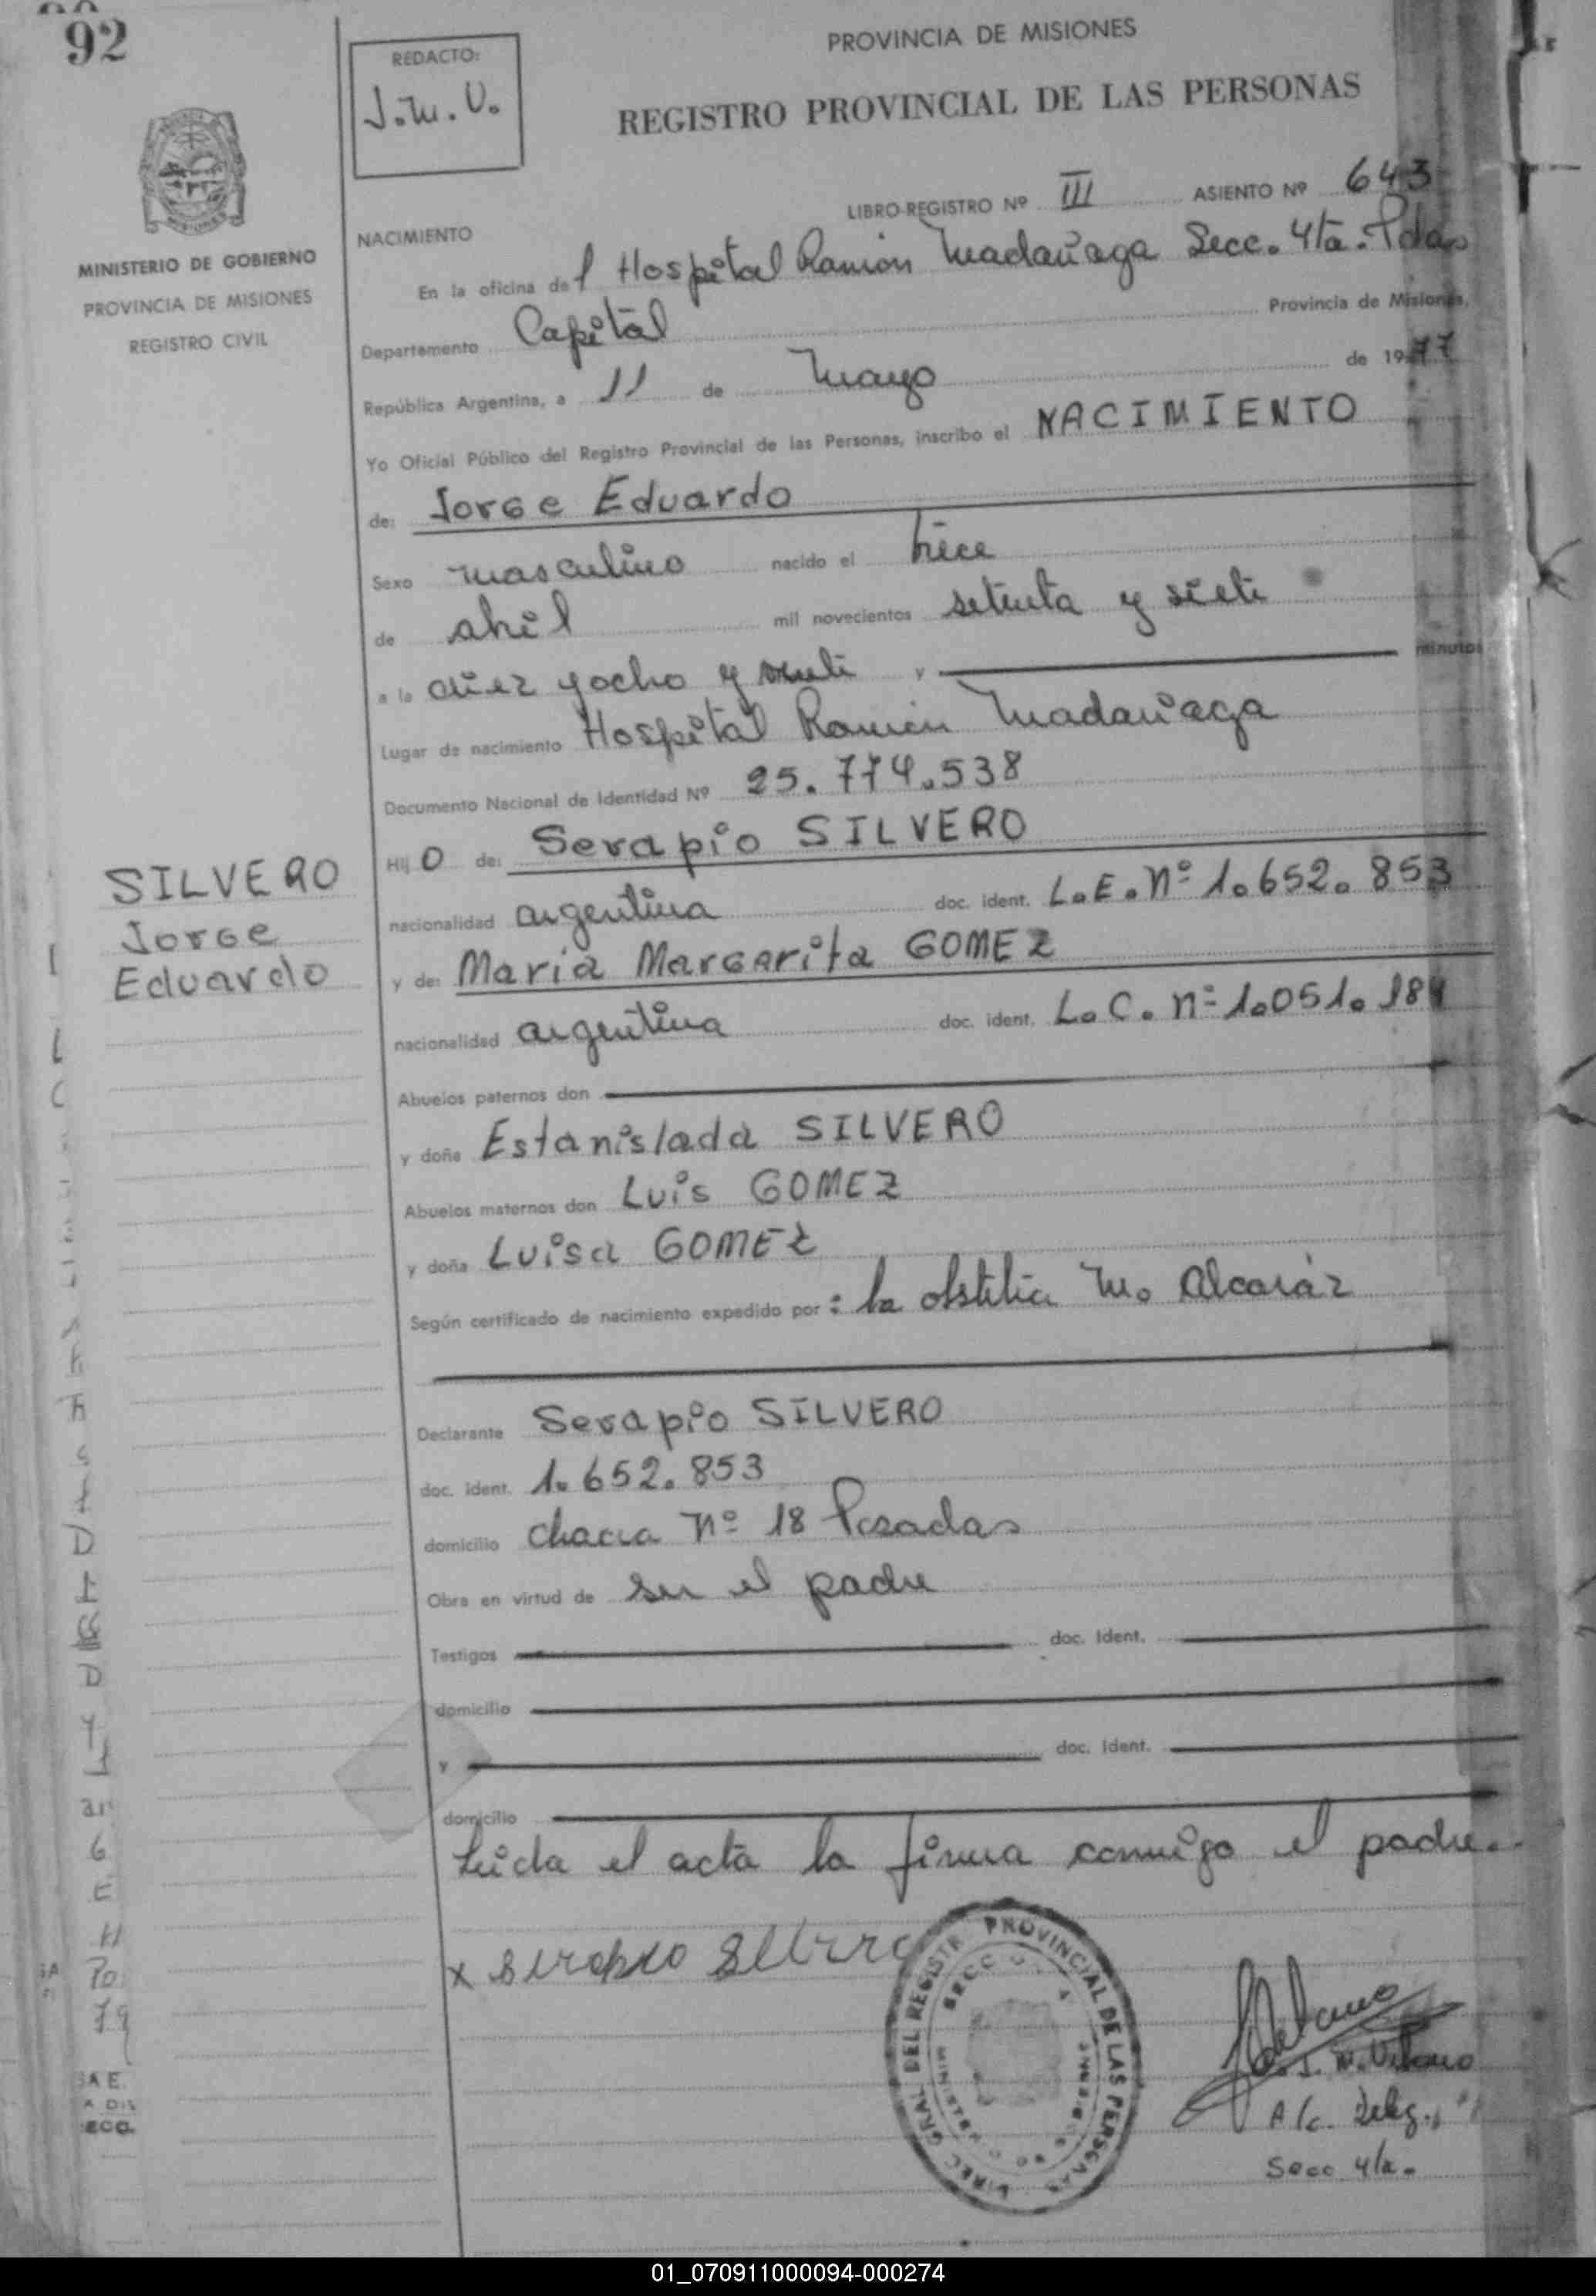 92
REDACTO:
J.M.V.
PROVINCIA DE MISIONES
REGISTRO PROVINCIAL DE LAS PERSONAS
MINISTERIO DE GOBIERNO
PROVINCIA DE MISIONES
REGISTRO CIVIL
LIBRO-REGISTRO Nº III ASIENTO Nº 643
NACIMIENTO
En la oficina del Hospital Ramón Madariaga Secc. 4ta. Pdas
Departamento Capital Provincia de Misiones,
República Argentina, a 11 de Mayo de 1977
Yo Oficial Público del Registro Provincial de las Personas, inscribo el NACIMIENTO
de: Jorge Eduardo
Sexo masculino nacido el trece
de abril mil novecientos setenta y siete
a la diez y ocho y y minutos
Lugar de nacimiento Hospital Ramón Madariaga
Documento Nacional de Identidad Nº 25.774.538
Hijo de: Serapio SILVERO
SILVERO
Jorge
Eduardo
nacionalidad argentina doc. ident. L.E. Nº 1.652.853
y de: Maria Margarita GOMEZ
nacionalidad argentina doc. ident. L.C. Nº 1.051.184
Abuelos paternos don
y doña Estanislada SILVERO
Abuelos maternos don Luis GOMEZ
y doña Luisa GOMEZ
Según certificado de nacimiento expedido por: la M. Alcaráz
Declarante Serapio SILVERO
doc. ident. 1.652.853
domicilio chacra Nº 18 Posadas
Obra en virtud de ser el padre
Testigos doc. ident.
domicilio
y doc. ident.
domicilio
Leida el acta la firma conmigo el padre.
x
DIREC. GRAL. DEL REGISTR. PROVINCIAL DE LAS PERSONAS
A/c. Deleg.
Secc 4ta.
01_070911000094-000274